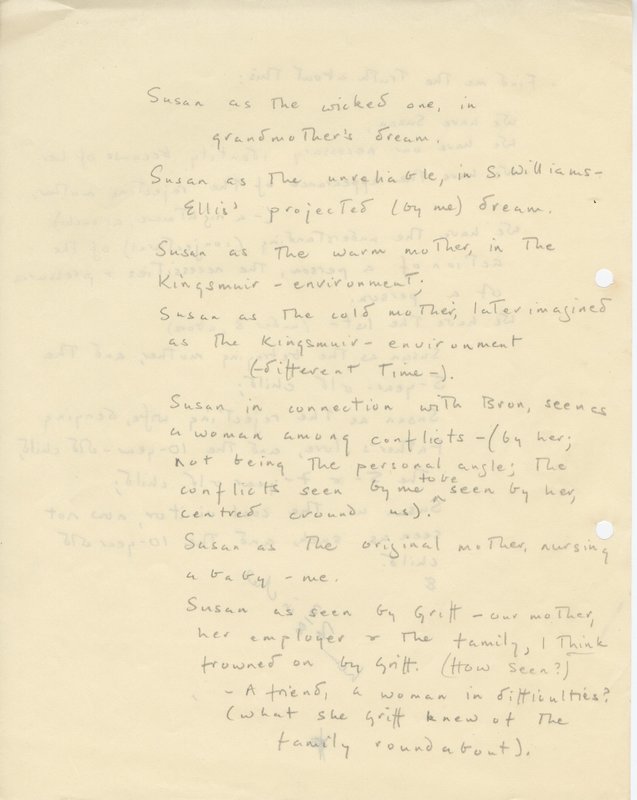 Susan as the wicked one, in
grandmother's dream.
Susan as the unreliable, in S. Williams-
Ellis' projected (by me) dream.
Susan as the warm mother, in the
Kingsmuir - environment;
Susan as the cold mother, later imagined
as the Kingsmuir - environment
(-different Time-).
Susan in connection with Bron, seen as
a woman among conflicts - (by her;
not being the personal angle; the
conflicts seen by me to be seen by her,
centred around us).
Susan as the original mother, nursing
a baby - me.
Susan as seen by Griff - our mother,
her employer & the family, I Think
frowned on by Griff. (How seen?)
- A friend, a woman in difficulties?
(what she Griff knew of the
family roundabout).